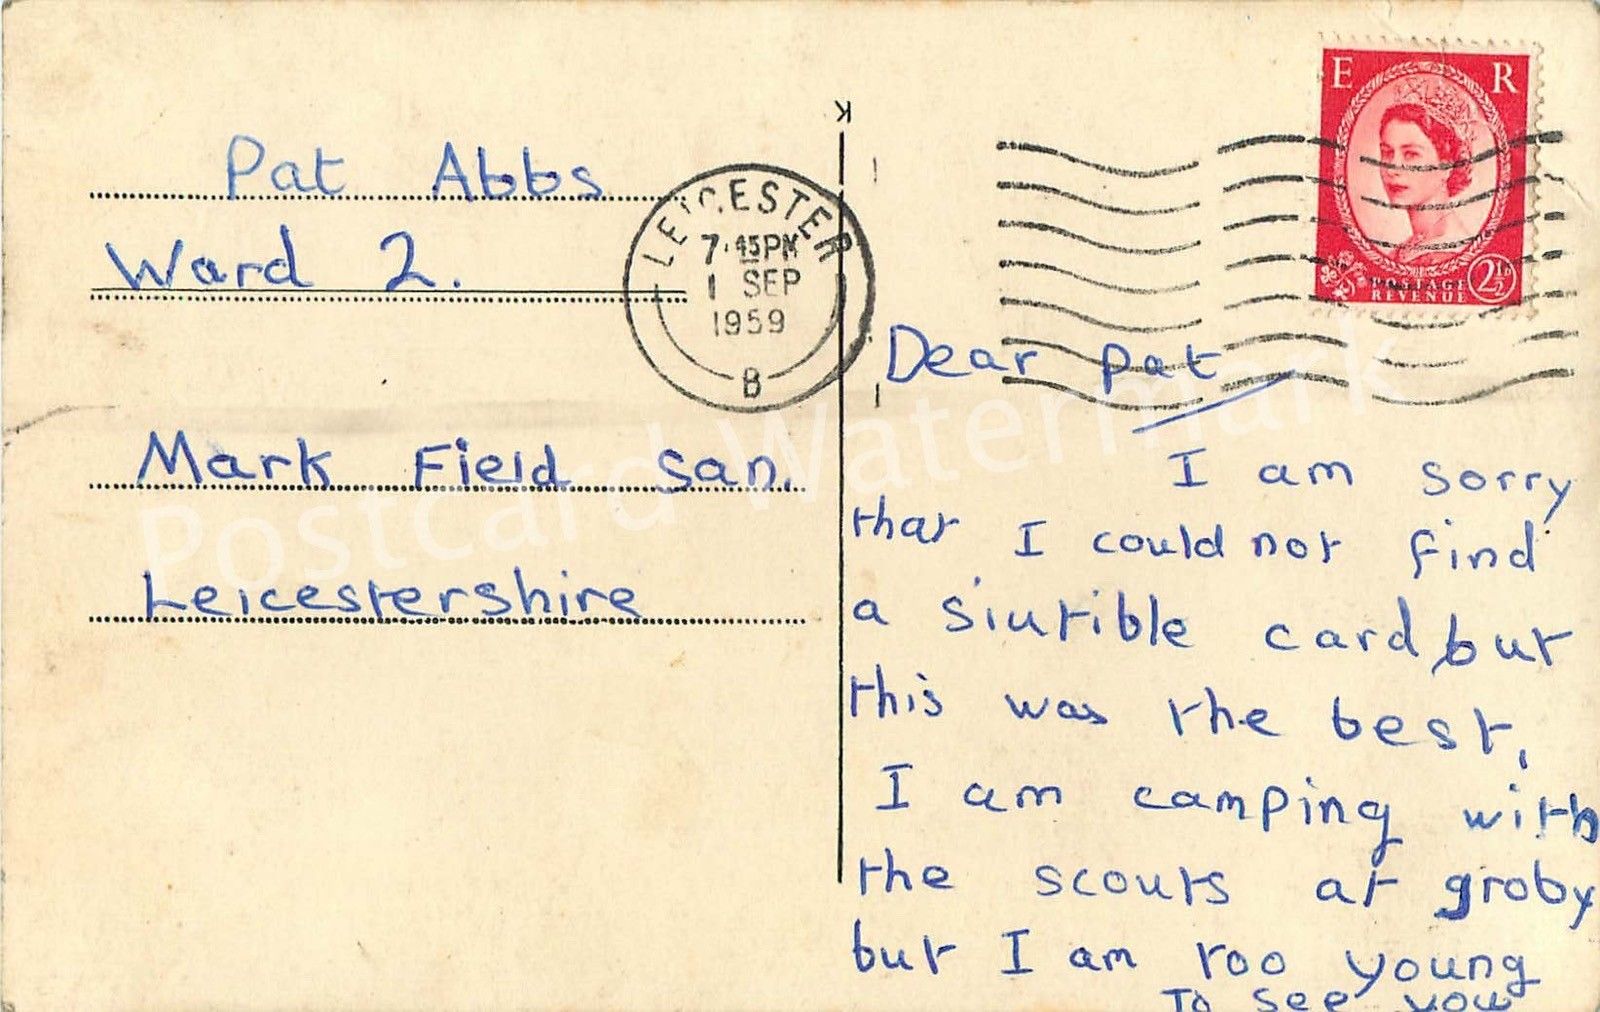 Pat Abbs
Ward 2.
Mark Field San.
Leicestershire
LEICESTER
7.45PM
1 SEP
1959
B
K
E R
POSTAGE
REVENUE
2½D
Dear Pat
I am sorry
that I could not find
a siutible card but
this was the best,
I am camping with
the scouts at groby
but I am too young
To see you
Postcard Watermark